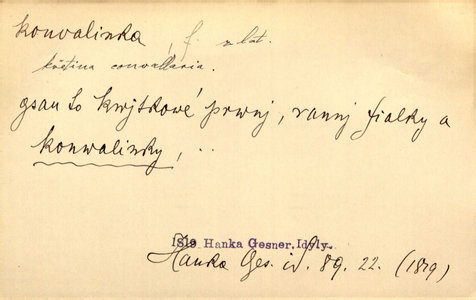 konvalinka, f. z lat.
květina convallaria.
gsau to kwjtkowé prwnj, rannj fialky a
konwalinky, ..
1819 Hanka Gesner. Idyly
Hanka Ges. id. 89. 22. (1819)